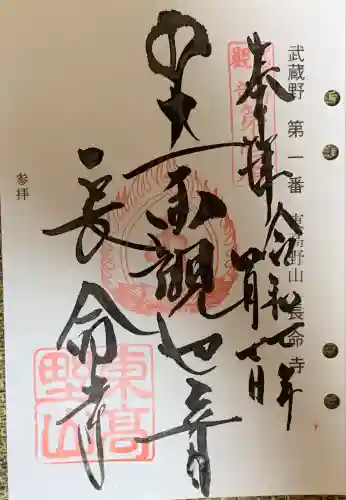 武蔵野 第一番 東高野山 長命寺
奉拝 令和七年
四月七日
聖観世音
長命寺
参拝
東高
野山